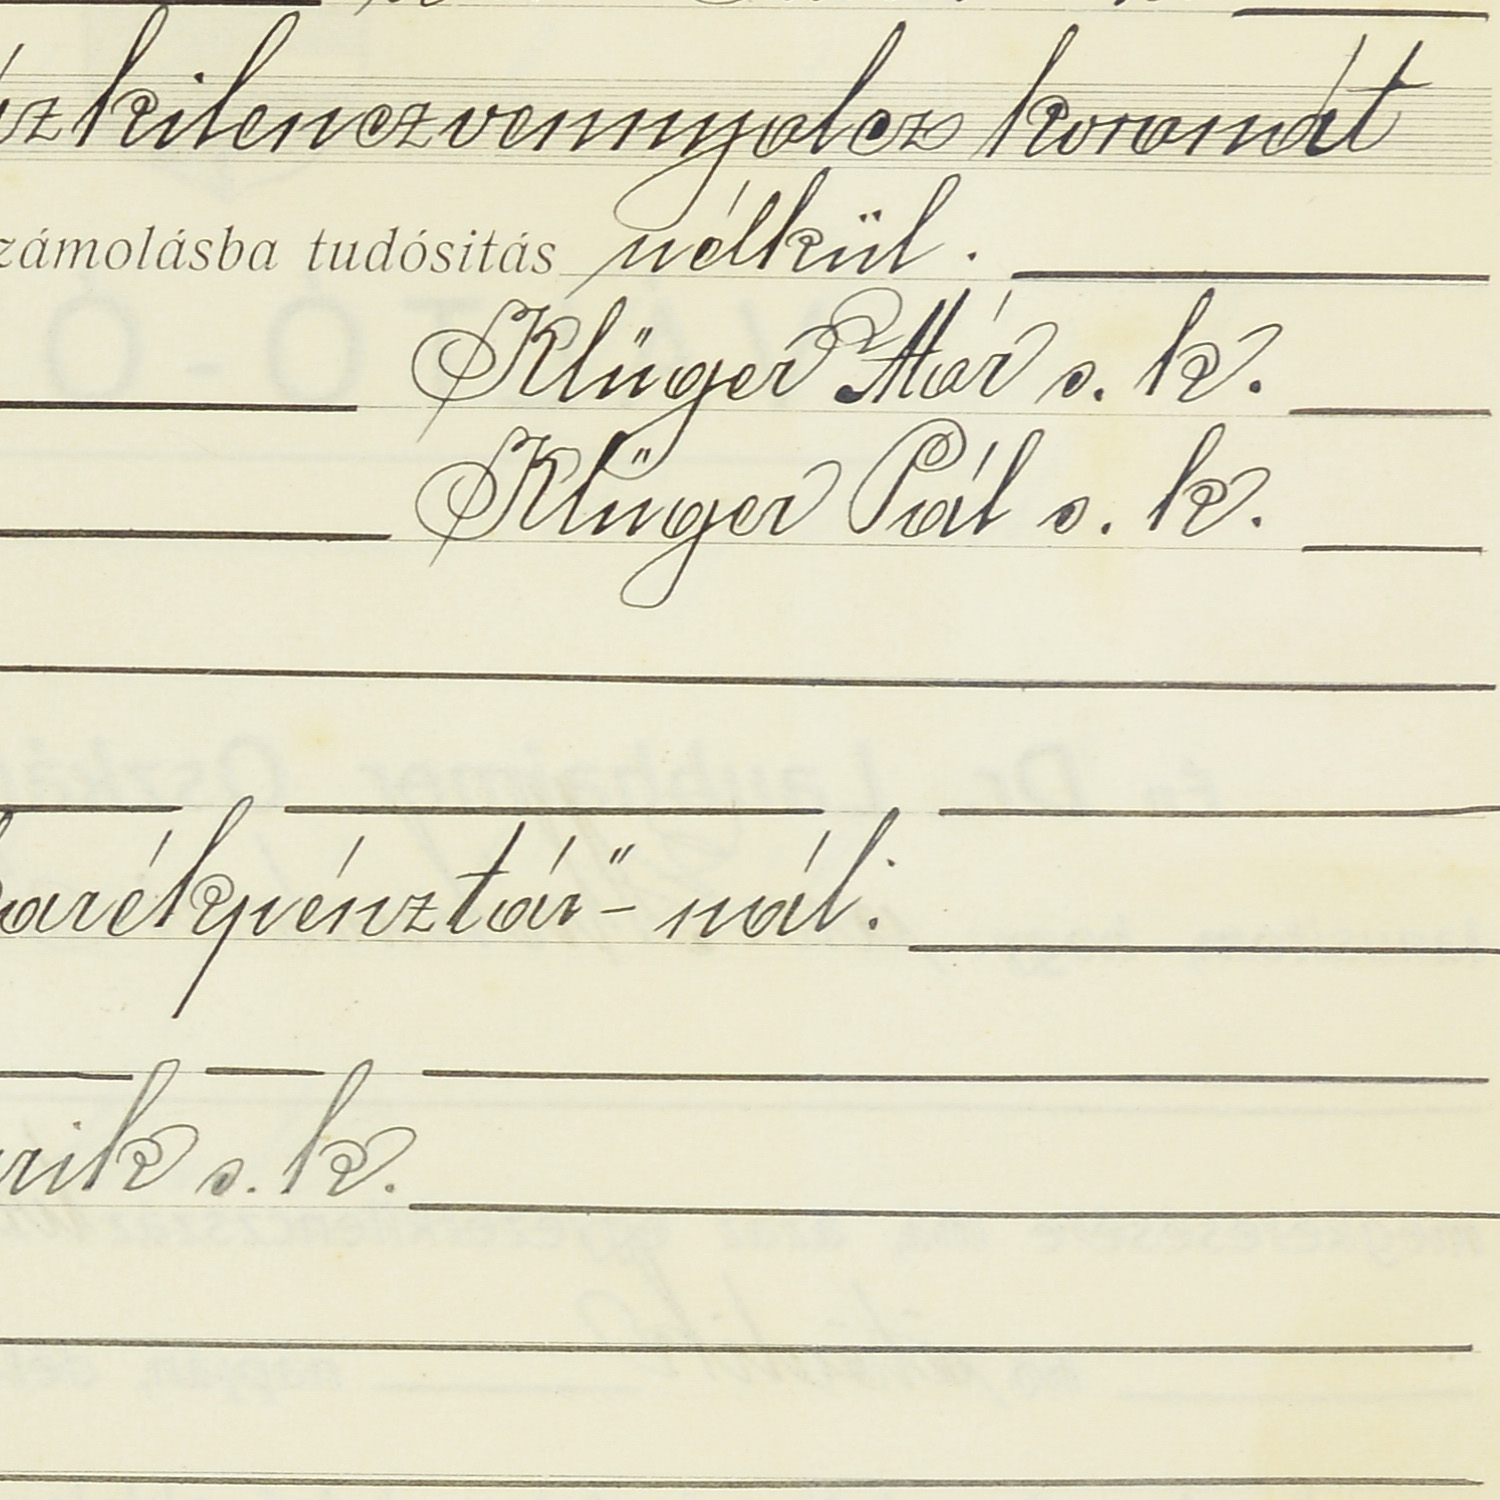 zkilenczvennyolcz koronát
zámolásba tudósitás nélkül.
Klüger Mór s. k.
Klüger Pál s. k.
arékpénztár" - nál.
rik s. k.